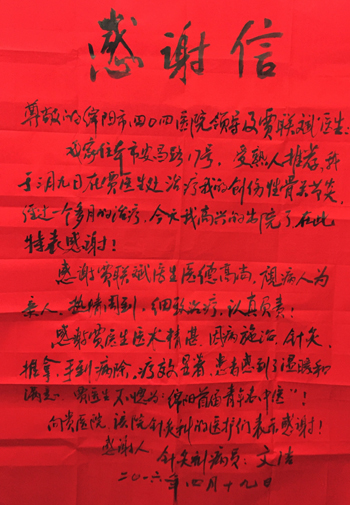 感谢信
尊敬的绵阳市四〇四医院领导及贾联斌医生:
我家住本市安昌路17号,受熟人推荐,我
于三月九日在贾医生处治疗我的创伤性骨关节炎,
经过一个多月的治疗,今天我高兴的出院了在此
特表感谢!
感谢贾联斌医生医德高尚,视病人为
亲人,热情周到,细致治疗,认真负责!
感谢贾医生医术精湛,因病施治,针灸,
推拿,手到病除,疗效显著,患者感到了温暖和
满意。贾医生不愧为"绵阳首届青年名中医"!
向贵医院,该院针灸科的医护们表示感谢!
感谢人 针灸科病员:文洁
二〇一六年四月十九日